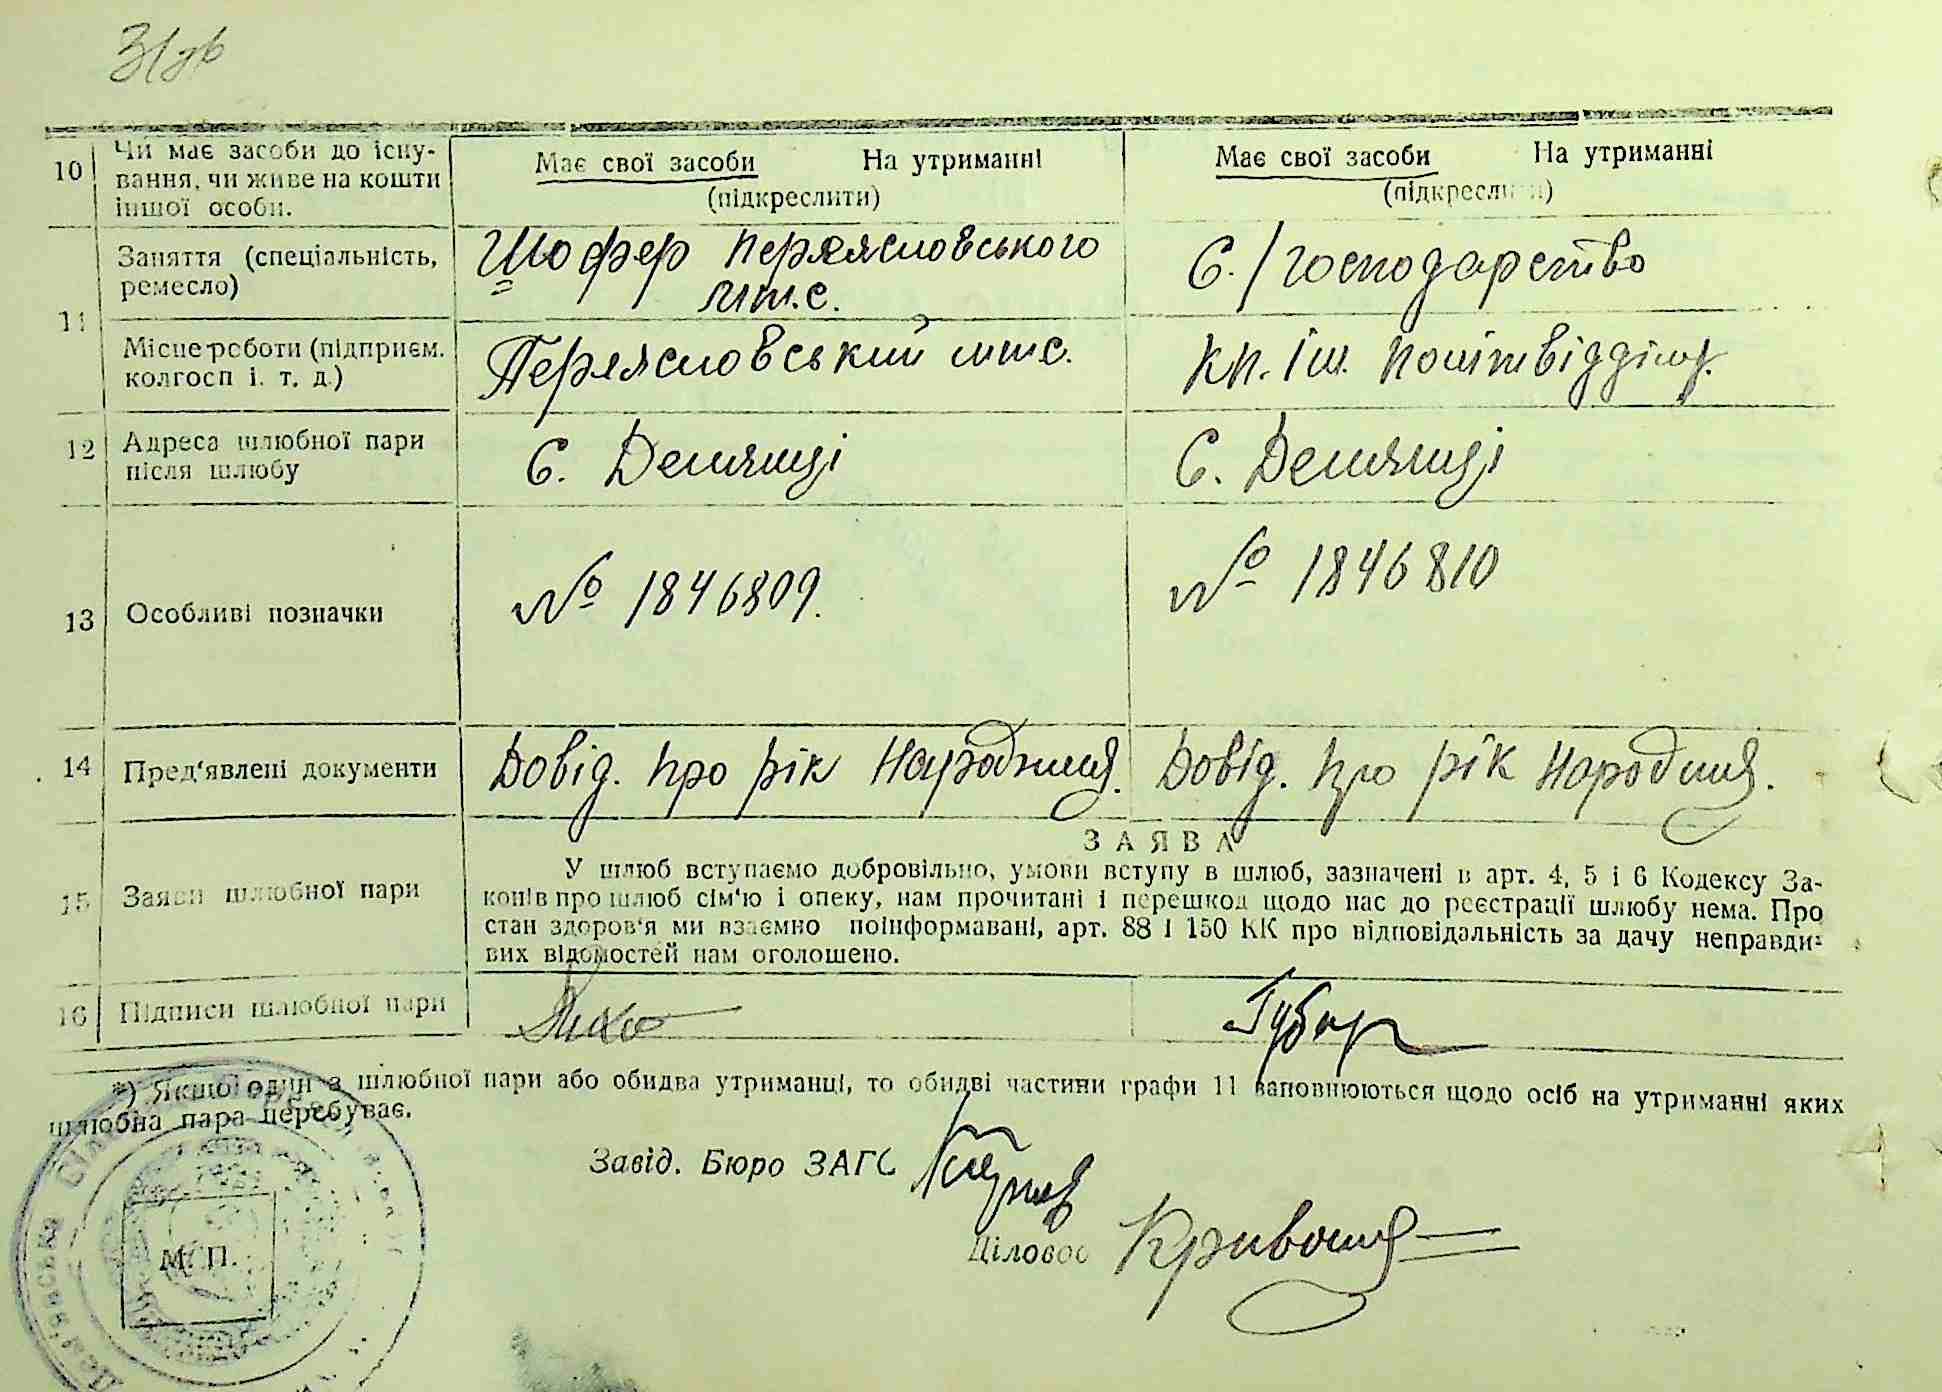 31зв
10 Чи має засоби до існу- Має свої засоби На утриманні Має свої засоби На утриманні
вання, чи живе на кошти (підкреслити) (підкреслити)
іншої особи.
11 Заняття (спеціальність, Шофер Переяславського С./господарство
ремесло) мтс.
Місце роботи (підприєм. Переяславський мтс. кп. ім. Політвідділу.
колгосп і. т. д.)
12 Адреса шлюбної пари С. Дем'янці С. Дем'янці
після шлюбу
13 Особливі позначки № 1846809. № 1846810
14 Пред'явлені документи Довід. про рік Народжня. Довід. про рік Народжня.
ЗАЯВА
15 Заяви шлюбної пари У шлюб вступаємо добровільно, умови вступу в шлюб, зазначені в арт. 4, 5 і 6 Кодексу За-
конів про шлюб сім'ю і опеку, нам прочитані і перешкод щодо нас до реєстрації шлюбу нема. Про
стан здоров'я ми взаємно поінформавані, арт. 88 і 150 КК про відповідальність за дачу неправди-
вих відомостей нам оголошено.
16 Підписи шлюбної пари Губар
*) Якщо один з шлюбної пари або обидва утриманці, то обидві частини графи 11 заповнюються щодо осіб на утриманні яких
шлюбна пара перебуває.
Завід. Бюро ЗАГС
Діловод
М. П.